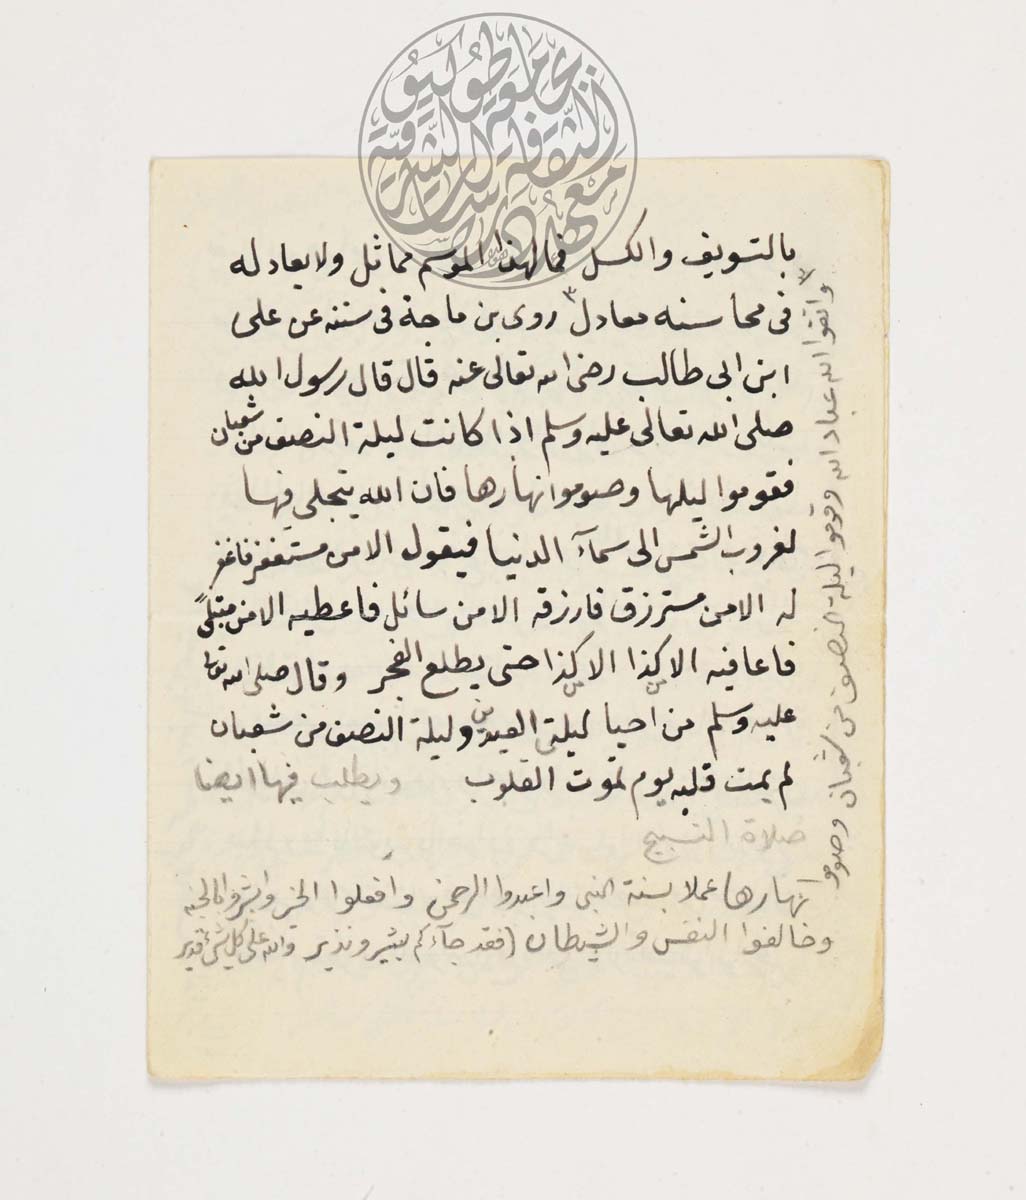 جامعة طوكيو
معهد الثقافة
الدراسات الشرقية
بالتسويف والكسل فما لهذا الموسم مماثل ولا يعادله
فى محاسنه معادل ٣ روى بن ماجة فى سننه عن على
ابن ابى طالب رضى الله تعالى عنه قال قال رسول الله
صلى الله تعالى عليه وسلم اذا كانت ليلة النصف من شعبان
فقوموا ليلها وصوموا نهارها فان الله يتجلى فيها
لغروب الشمس الى سمآء الدنيا فيقول الا من مستغفر فاغفر
له الا من مسترزق فارزقه الا من سائل فاعطيه الا من مبتلىً
فاعافيه الا من كذا الا من كذا حتى يطلع الفجر وقال صلى الله تعالى
عليه وسلم من احيا ليلتى العيدين وليلة النصف من شعبان
لم يمت قلبه يوم تموت القلوب ويطلب فيها ايضا
صلاة التسبيح
٣ واتقوا الله عباد الله وقوموا ليلة النصف من شعبان وصوموا
نهارها عملا بسنة النبى واعبدوا الرحمن وافعلوا الخير وابشروا بالجنه
وخالفوا النفس والشيطان (فقد جآءكم بشير ونذير والله على كل شئ قدير